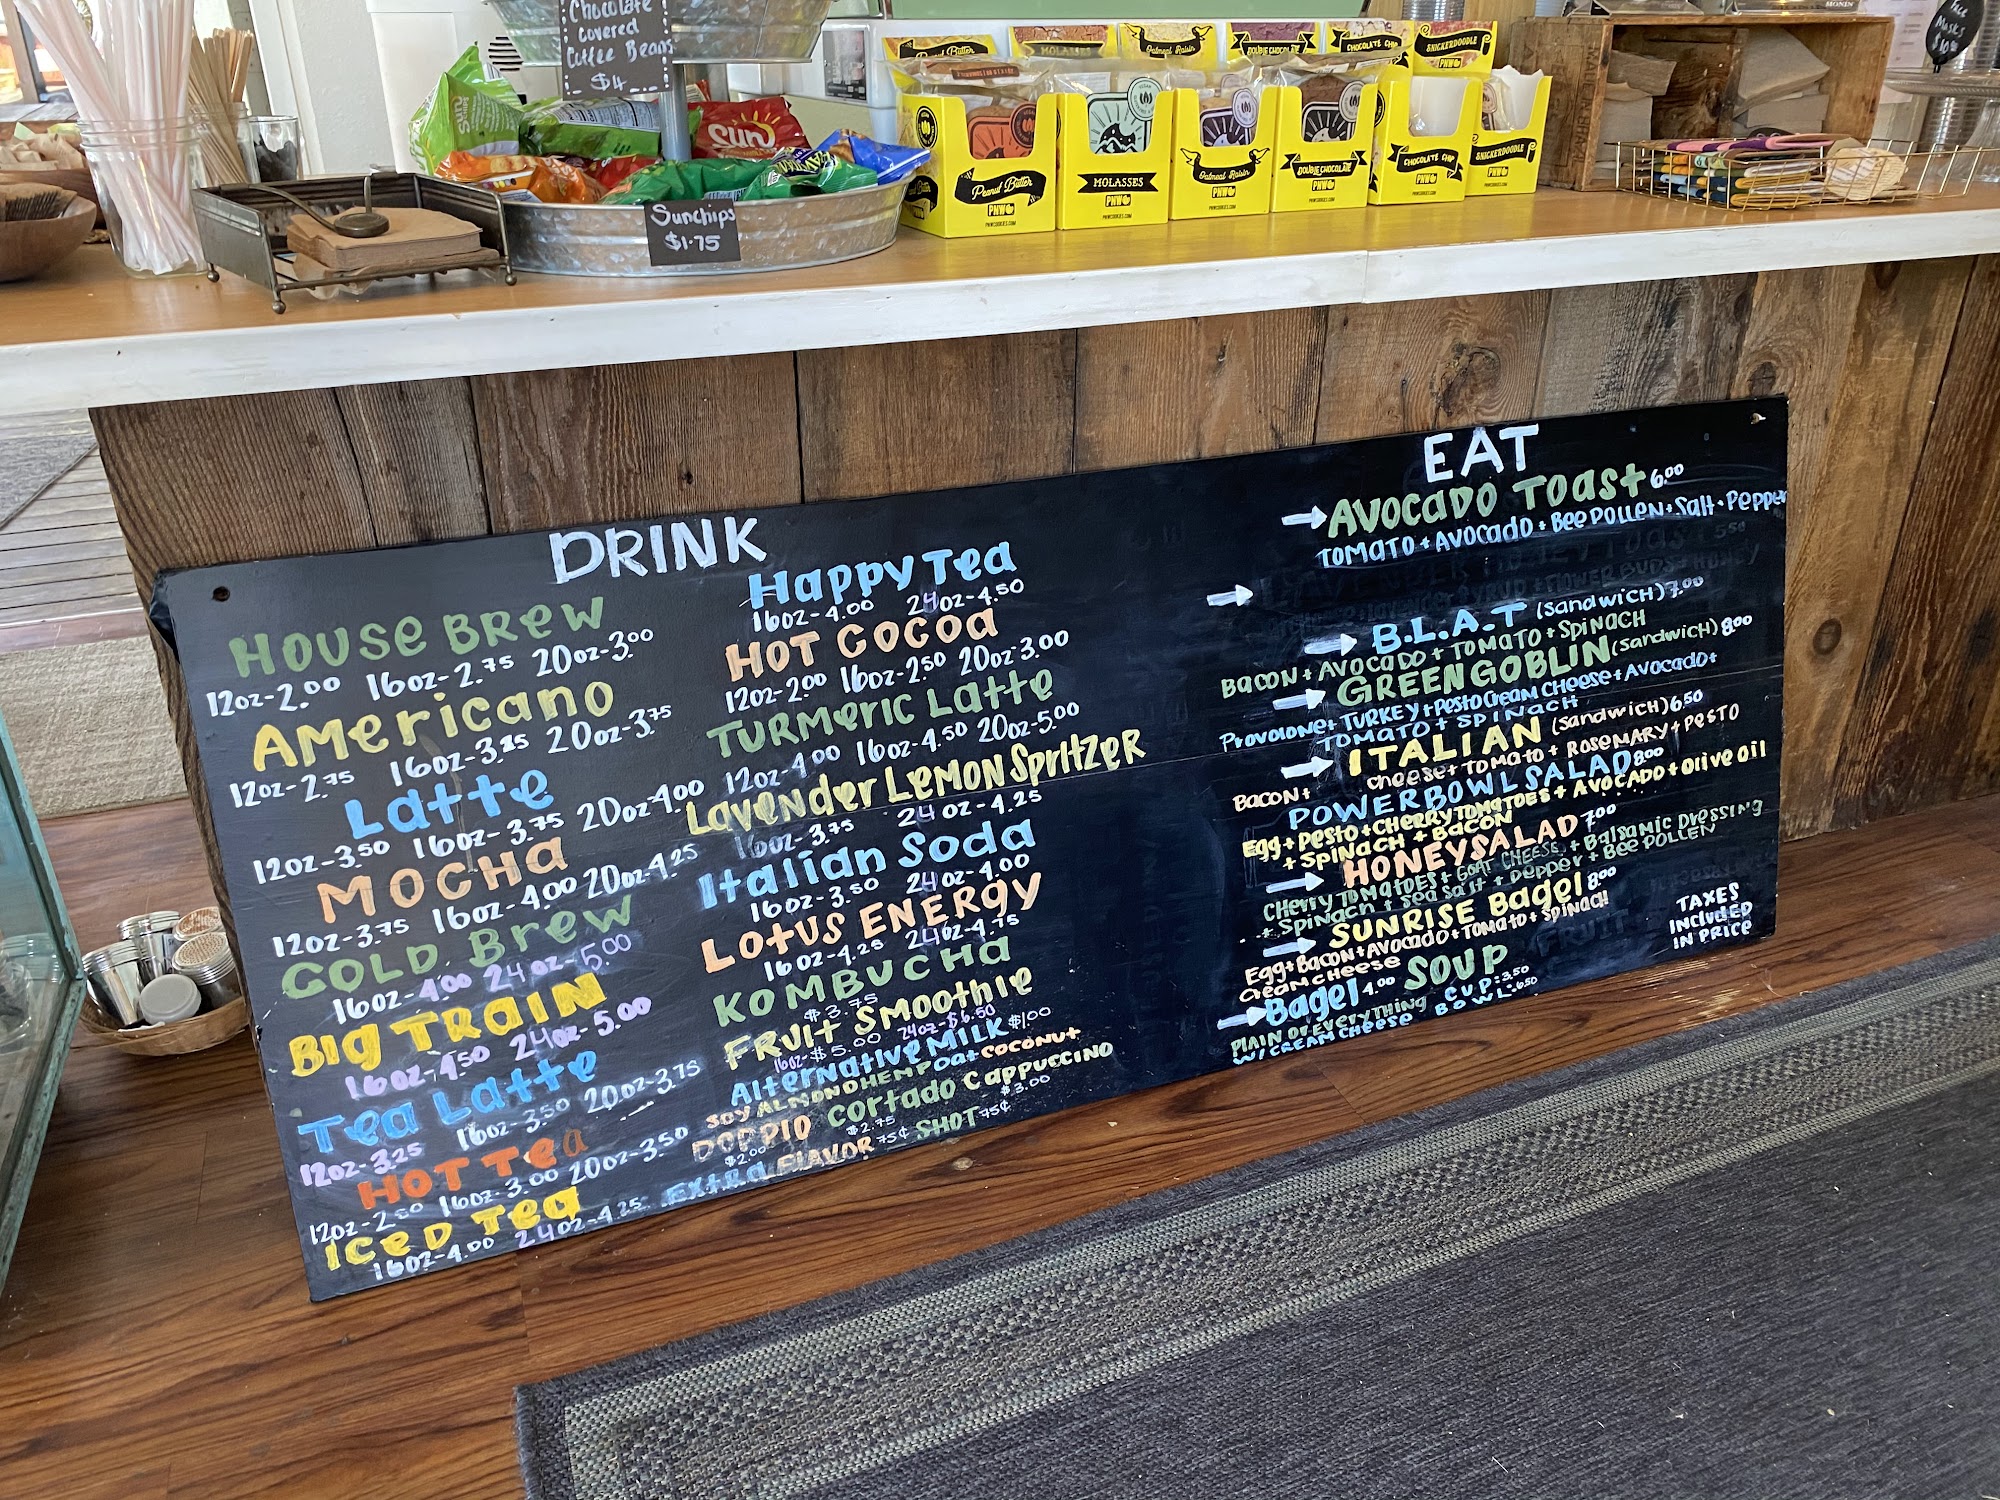 Chocolate
covered
Coffee Beans
$4
Sunchips
$1.75
SUN
Peanut Butter
MOLASSES
Oatmeal Raisin
DOUBLE CHOCOLATE
CHOCOLATE CHIP
SNICKERDOODLE
Peanut Butter
PNW
MOLASSES
PNW
Oatmeal Raisin
PNW
DOUBLE CHOCOLATE
PNW
CHOCOLATE CHIP
PNW
SNICKERDOODLE
PNW
Face
Masks
$10
DRINK
HOUSE BREW
12oz-2.00 16oz-2.75 20oz-3.00
AMericano
12oz-2.75 16oz-3.25 20oz-3.75
Latte
12oz-3.50 16oz-3.75 20oz-4.00
MOCHa
12oz-3.75 16oz-4.00 20oz-4.25
COLD Brew
16oz-4.00 24oz-5.00
BIg TRAIN
16oz-4.50 24oz-5.00
Tea Latte
12oz-3.25 16oz-3.50 20oz-3.75
HOT Tea
12oz-2.50 16oz-3.00 20oz-3.50
ICeD Tea
16oz-4.00 24oz-4.25
Happy Tea
16oz-4.00 24oz-4.50
HOT COCOa
12oz-2.00 16oz-2.50 20oz-3.00
TURMeRIC Latte
12oz-4.00 16oz-4.50 20oz-5.00
Lavender LeMON Spritzer
16oz-3.75 24oz-4.25
Italian Soda
16oz-3.50 24oz-4.00
LOtUS ENERGY
16oz-4.25 24oz-4.75
KOMBUCHa
$3.75
FRUIt SMOOthie
16oz-$5.00 24oz-$6.50
AlternatIve MILK $1.00
SOY ALMOND HEMP Oat COCONUT
DOPPIO CORtaDO CaPPUCCINO
$2.00 $2.75 $3.00
EXtRa FLaVOR 75¢ SHOT 75¢
EAT
AVOCaDO TOaSt 6.00
TOMaTO + AVOCaDO + Bee POLLEN + Salt + Pepper
B.L.A.T (sandwich) 7.00
BaCON + AVOCaDO + TOMaTO + SPINaCH
GREEN GOBLIN (sandwich) 8.00
PROVOLONE + TURKEY + PESTO CREAM CHEESE + AVOCaDO +
TOMATO + SPINaCH
ITALIAN (sandwich) 6.50
BaCON + CHEESE + TOMaTO + ROSEMARY + PESTO
POWERBOWL SALAD 8.00
Egg + PESTO + CHERRY TOMATOES + AVOCADO + Olive Oil
+ SPINaCH + BaCON
HONEY SALAD 7.00
CHERRY TOMATOES + GOAT CHEESE + Balsamic Dressing
+ Spinach + Sea Salt + Pepper + Bee POLLEN
SUNRISE Bagel 8.00
Egg + BaCON + AVOCaDO + TOMaTO + SPINaCH
CREaM CHEESE
Bagel 4.00 SOUP
PLAIN OR EVERYTHING CUP: 3.50
W/ CREAM CHEESE BOWL-6.50
TAXES
INCLUDED
IN PRICE